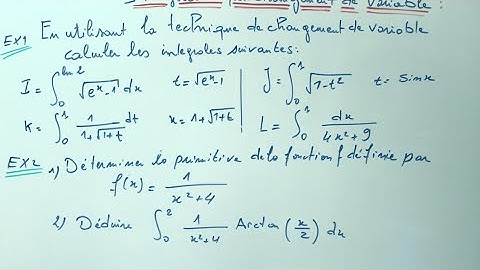 changement de variable :
EX1 En utilisant la technique de changement de variable
calculer les integrales suivantes:
I = ∫₀^{ln 2} √(eˣ-1) dx t = √(eˣ-1) J = ∫₀¹ √(1-t²) t = sinx
K = ∫₀¹ 1/(1+√(1+t)) dt x = 1+√(1+t) L = ∫₀¹ dx/(4x²+9)
EX2 1) Déterminer la primitive de la fonction f définie par
f(x) = 1/(x²+4)
2) Déduire ∫₀² 1/(x²+4) Arctan (x/2) dx